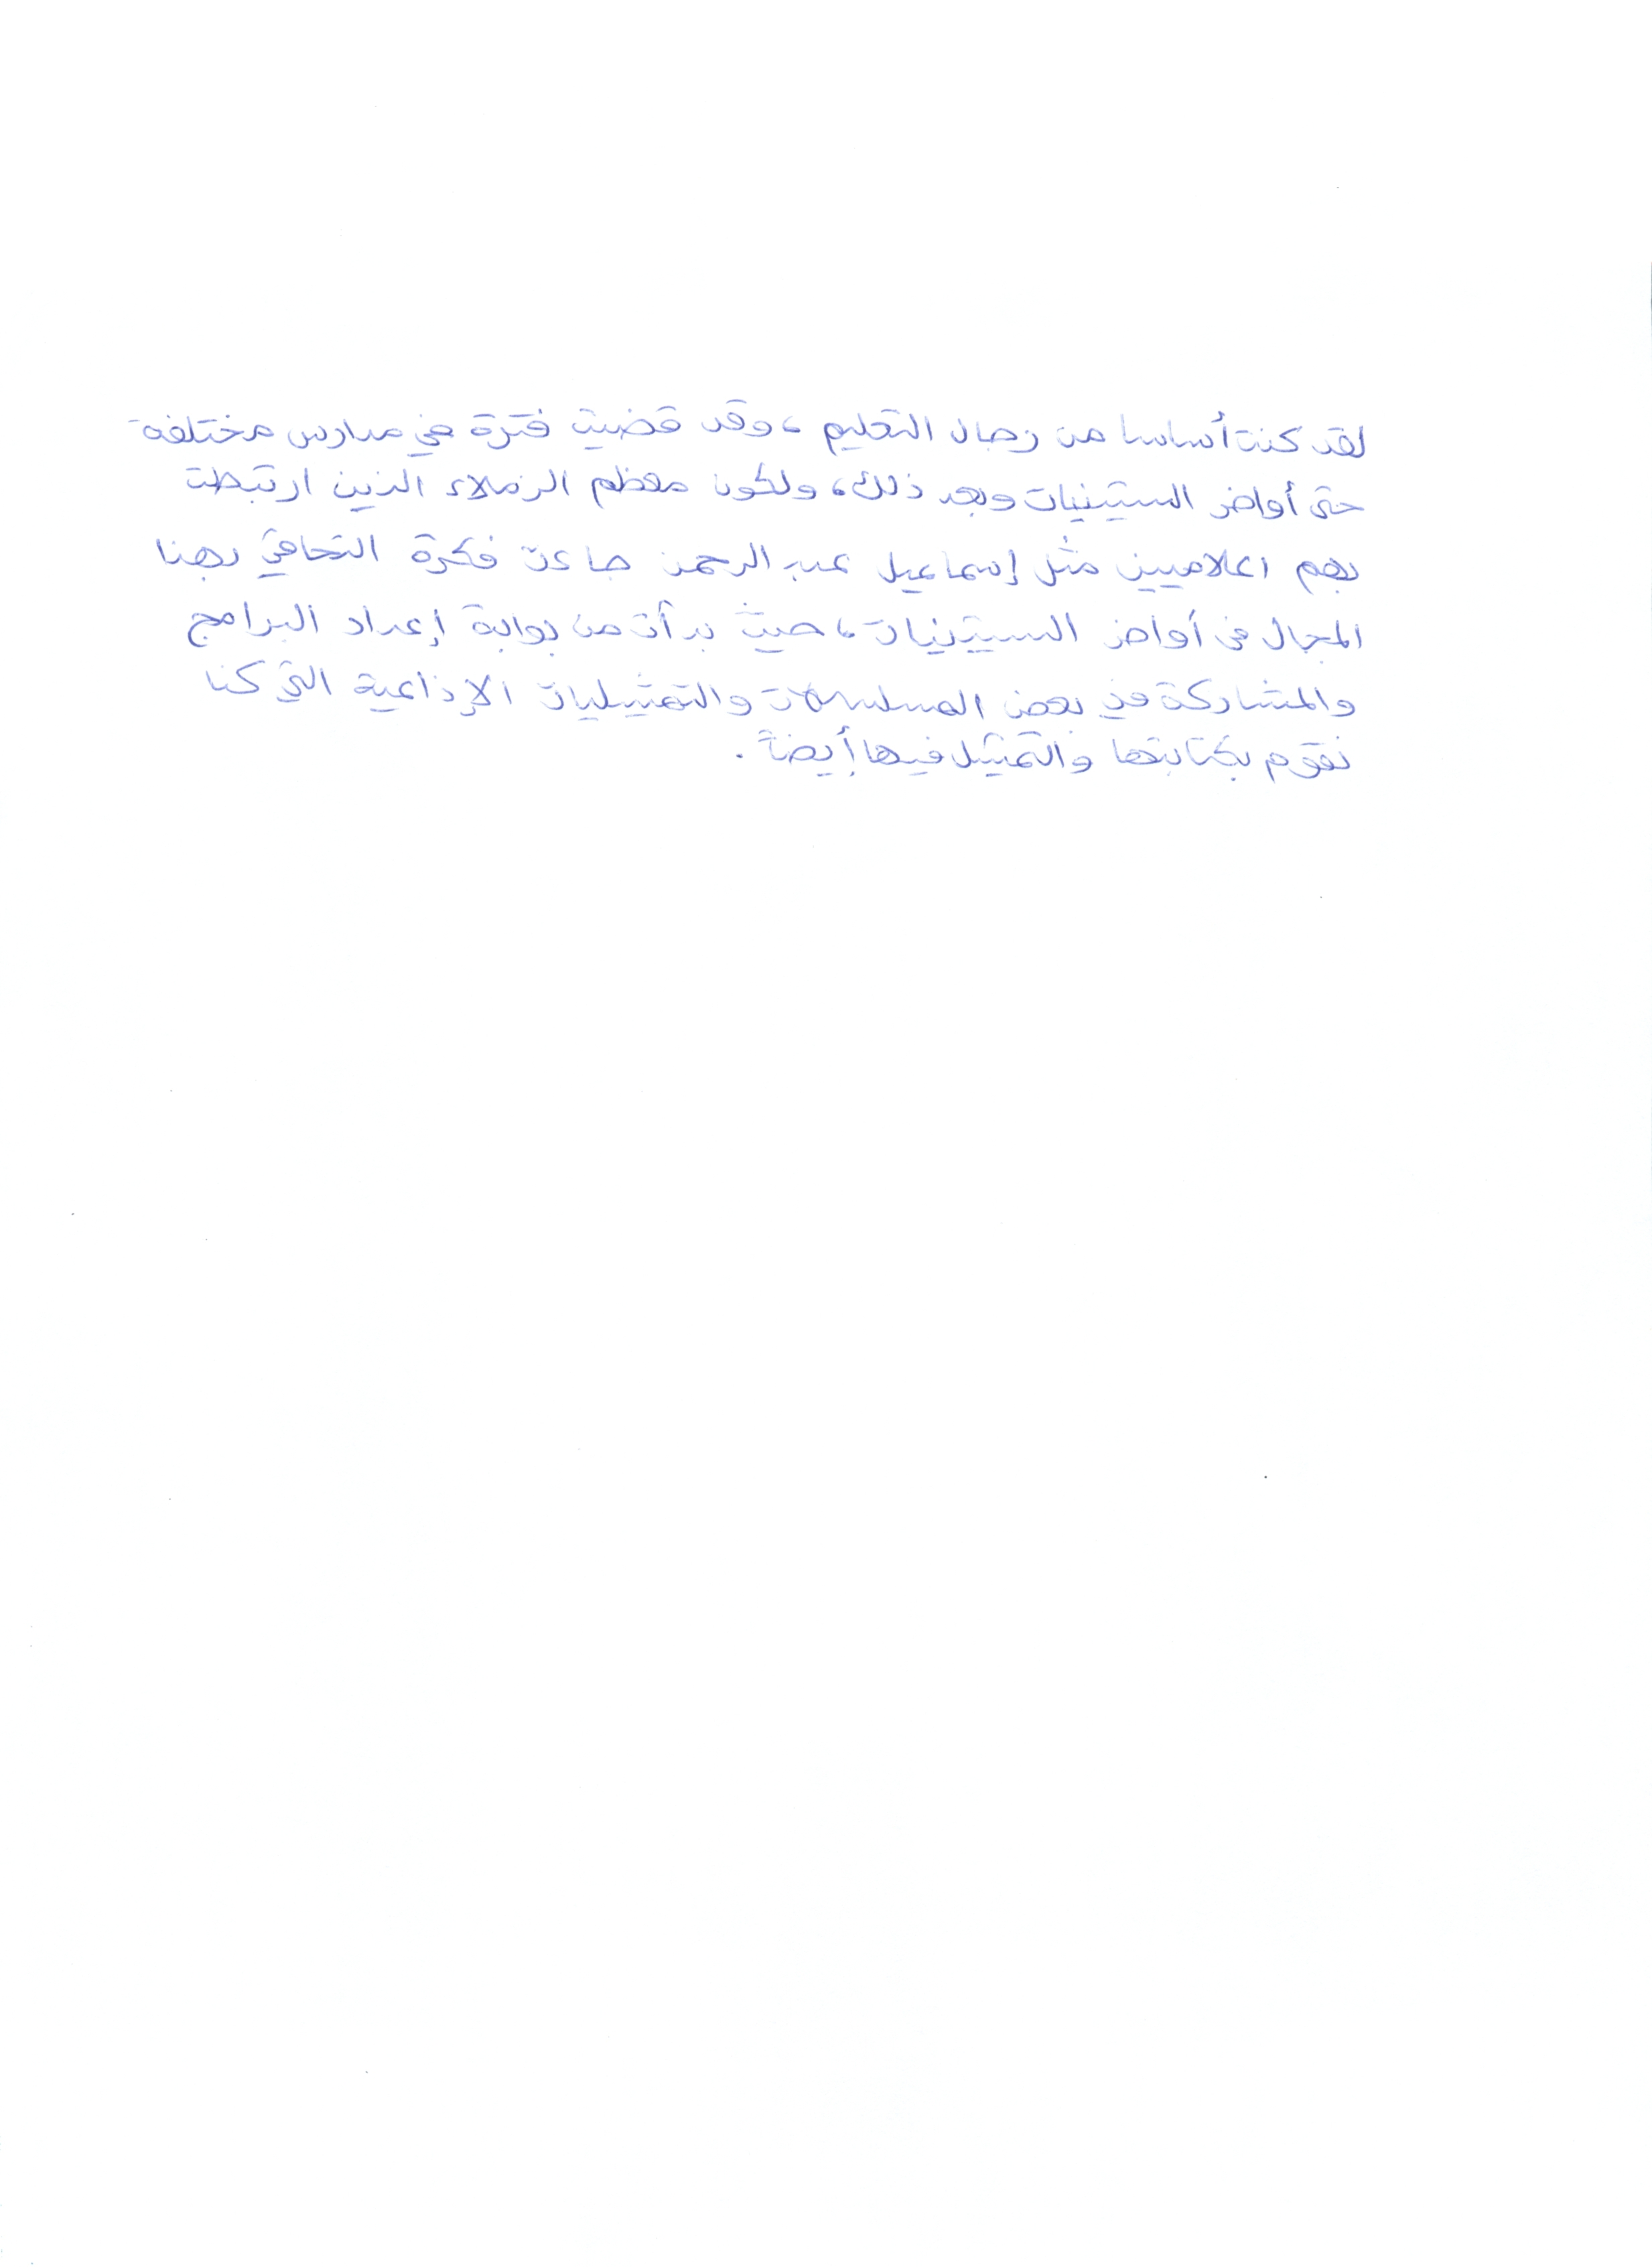 لقد كنت أساسا من رجال التعليم ، وقد قضيت فترة في مدارس مختلفة
حتى أواخر الستينيات وبعد ذلك، ولكون معظم الزملاء الذين ارتبطت
بهم اعلاميين مثل إسماعيل عبد الرحمن جاءت فكرة التحاقي بهذا
المجال في أواخر الستينيات، حيث بدأت من بوابة إعداد البرامج
والمشاركة في بعض المسلسلات والتمثيليات الإذاعية التي كنا
نقوم بكتابتها والتمثيل فيها أيضاً .